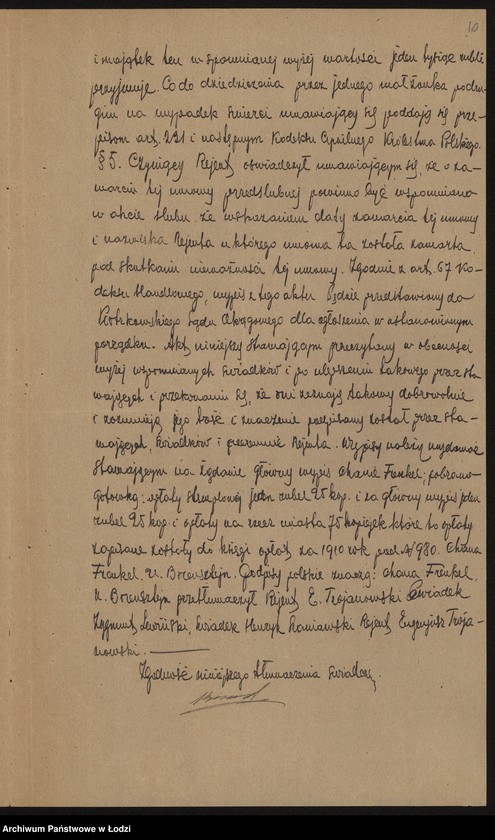 10
i majątek ten w spomnianej wyżej wartości jeden tysiąc rubli
przyjmuje. Co do dziedziczenia przez jednego małżonka po dru-
gim na wypadek śmierci umawiający się poddają się prze-
pisom art. 231 i następnym Kodeksu Cywilnego Królestwa Polskiego.
§ 5. Czyniący Rejent oświadczył umawiającym się, że o za-
warciu tej umowy przedślubnej powinno być wspomniano
w akcie ślubu, ze wskazaniem daty zawarcia tej umowy
i nazwiska Rejenta u którego umowa ta została zawarta
pod skutkami nieważności tej umowy. Zgodnie z art. 67 Ko-
deksu Handlowego, wypis z tego aktu będzie przedstawiony do
Piotrkowskiego Sądu Okręgowego dla ogłoszenia w ustanowionym
porządku. Akt niniejszy stawającym przeczytany w obecności
wyżej wspomnianych świadków i po usłyszeniu takowego przez sta-
wających i przekonaniu się, że oni zeznają takowy dobrowolnie
i rozumieją jego treść i znaczenie podpisany został przez sta-
wających, świadków i Rejenta. Wypisy należy wydawać
stawającym na żądanie główny wypis Chanie Frenkel; pobrano
gotówką: opłaty stemplowej jeden rubel 25 kop. i za główny wypis jeden
rubel 25 kop. i opłaty na rzecz miasta 75 kopiejek które to opłaty
zapisane zostały do księgi opłat za 1910 rok pod № 980. Chana
Frenkel, U. Bornsztejn. Podpisy polskie znaczą: Chana Frenkel,
U. Bornsztejn przetłumaczył Rejent E. Trojanowski Świadek
Zygmunt Lewiński, świadek Henryk Rejent Eugenjusz Troja-
nowski.
Zgodność niniejszego tłumaczenia świadczę.